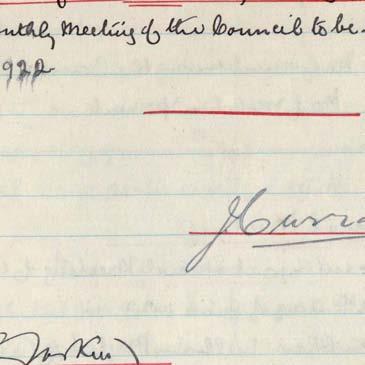 onthly Meeting of the Council to be
1922
J Curra
Larkin